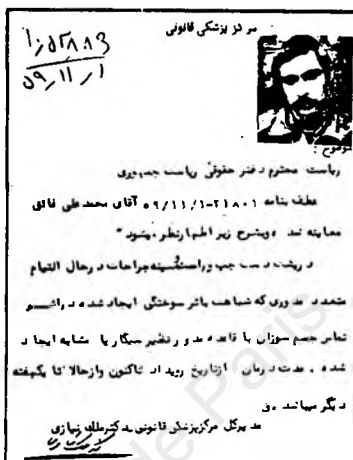 مرکز پزشکی قانونی
۵۲۸۸۳/ز۱
۵۹/۱۱/۱
موضوع :
ریاست محترم دفتر حقوقی ریاست جمهوری
عطف بنامه ۲۱۸۰۱-۵۹/۱۱/۱ آقای محمد علی فائق
معاینه شد و بشرح زیر اظهار نظر میشود"
در پشت دست چپ و راست و سینه جراحات در حال التیام
متعدد مدوری که شباهت باثر سوختگی ایجاد شده در اثر
تماس جسم سوزان با قاعده مدور نظیر سیگار یا مشابه ایجاد
شده . مدت درمان از تاریخ رویداد تاکنون و از حالا تا یکهفته
دیگر میباشد
مدیر کل مرکز پزشکی قانونی دکتر ملک نیازی
de Paris